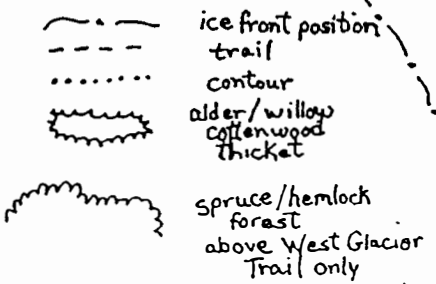 ice front position
trail
contour
alder/willow
cottenwood
thicket
spruce/hemlock
forest
above West Glacier
Trail only